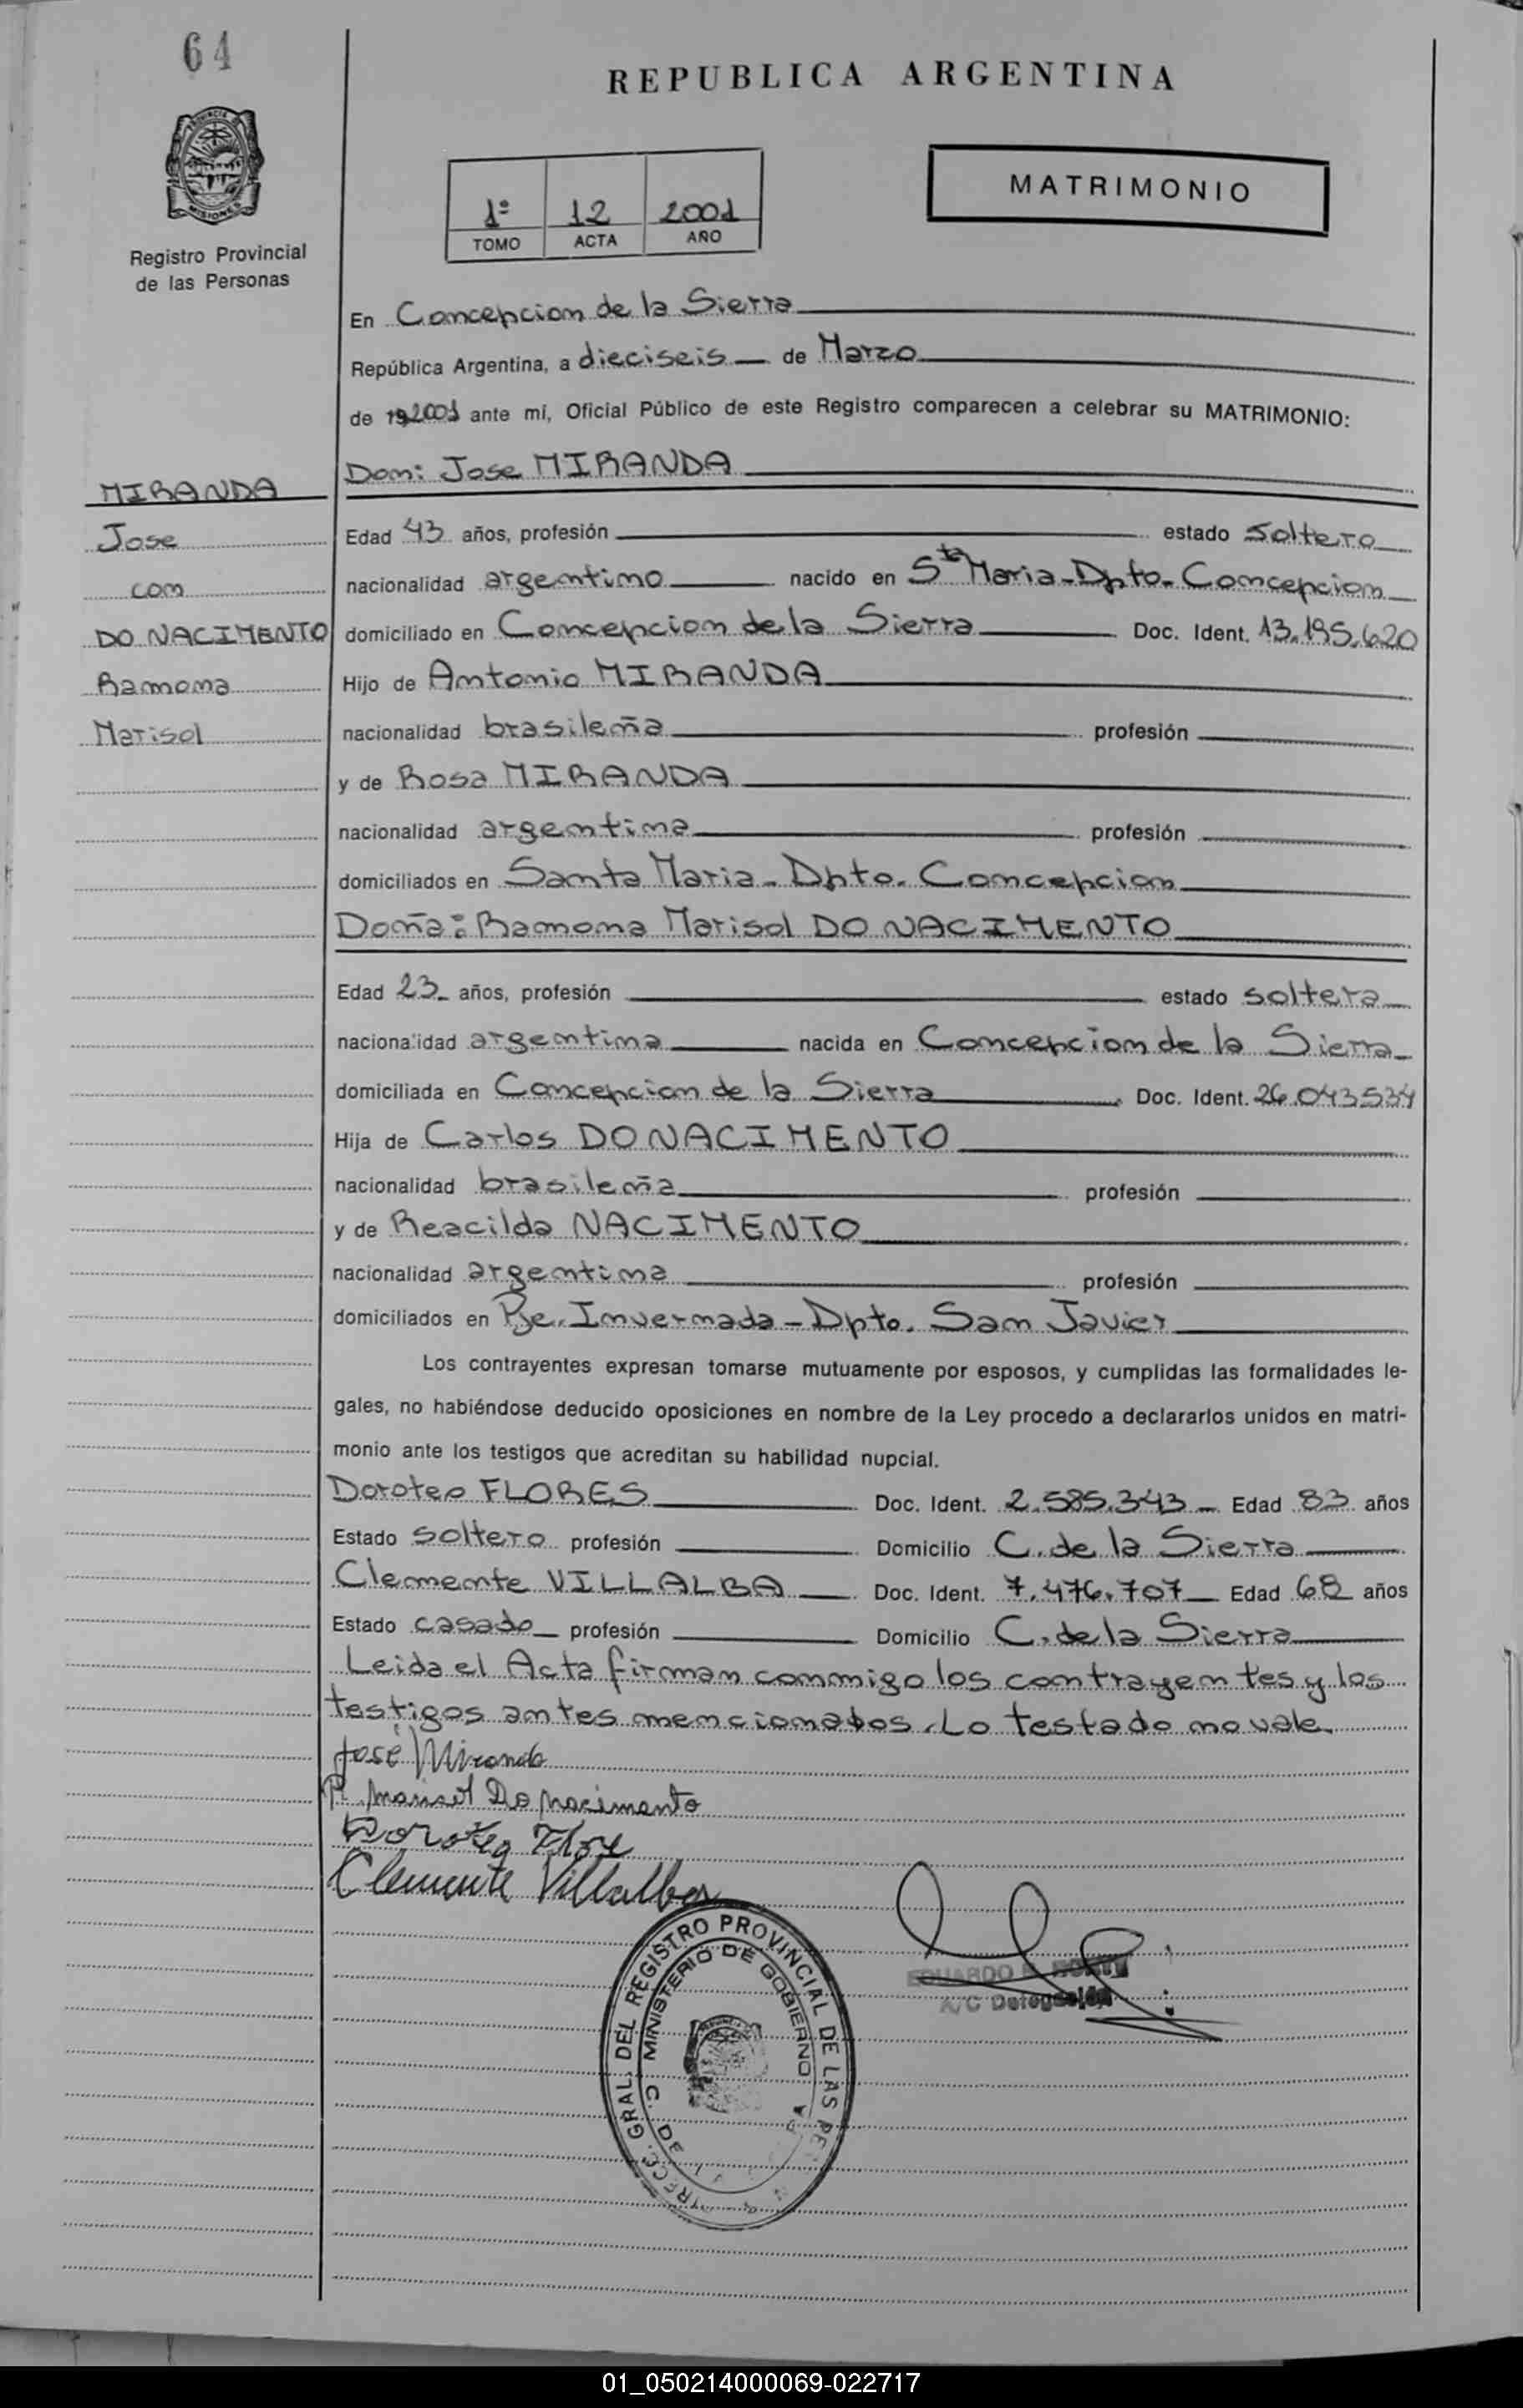 64
REPUBLICA ARGENTINA
PROVINCIA DE
MISIONES
Registro Provincial
de las Personas
1º 12 2001
TOMO ACTA AÑO
MATRIMONIO
En Concepcion de la Sierra
República Argentina, a dieciseis de Marzo
de 19 2001 ante mí, Oficial Público de este Registro comparecen a celebrar su MATRIMONIO:
MIRANDA
Jose
con
DO NACIMENTO
Ramona
Marisol
Don: Jose MIRANDA
Edad 43 años, profesión estado soltero
nacionalidad argentino nacido en Sta Maria-Dpto-Concepcion
domiciliado en Concepcion de la Sierra Doc. Ident. 13.195.620
Hijo de Antonio MIRANDA
nacionalidad brasileña profesión
y de Rosa MIRANDA
nacionalidad argentina profesión
domiciliados en Santa Maria-Dpto. Concepcion
Doña: Ramona Marisol DO NACIMENTO
Edad 23 años, profesión estado soltera
nacionalidad argentina nacida en Concepcion de la Sierra
domiciliada en Concepcion de la Sierra Doc. Ident. 26.043534
Hija de Carlos DO NACIMENTO
nacionalidad brasileña profesión
y de Reacilda NACIMENTO
nacionalidad argentina profesión
domiciliados en Pje. Invernada-Dpto. San Javier
Los contrayentes expresan tomarse mutuamente por esposos, y cumplidas las formalidades le-
gales, no habiéndose deducido oposiciones en nombre de la Ley procedo a declararlos unidos en matri-
monio ante los testigos que acreditan su habilidad nupcial.
Doroteo FLORES Doc. Ident. 2.585.343 Edad 83 años
Estado soltero profesión Domicilio C. de la Sierra
Clemente VILLALBA Doc. Ident. 7.476.707 Edad 68 años
Estado casado profesión Domicilio C. de la Sierra
Leida el Acta firman conmigo los contrayentes y los
testigos antes mencionados. Lo testado no vale
José Miranda
R. Marisol Do Nacimento
Doroteo Flore
Clemente Villalba
EDUARDO
A/C Delegación
GRAL. DEL REGISTRO PROVINCIAL DE LAS PE
MINISTERIO DE GOBIERNO
C. DE LA
01_050214000069-022717